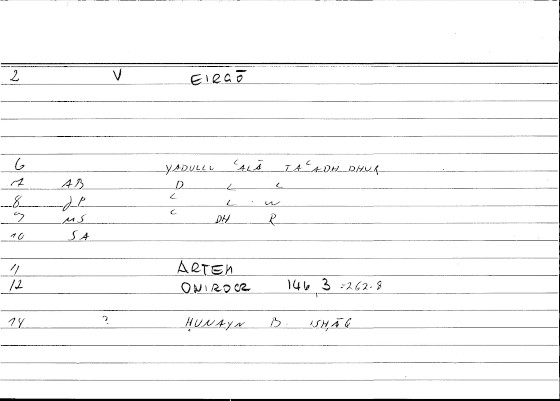 2 V EIRGŌ
6 YADULLU ʿALĀ TAʿADHDHUR
7 AB D ʿ ʿ
8 JP ʿ ʿ . W
9 MS ʿ DH R
10 SA
11 ARTEM
12 ONIROCR 146,3 =262.8
14 ? ḤUNAYN B. ISḤĀG